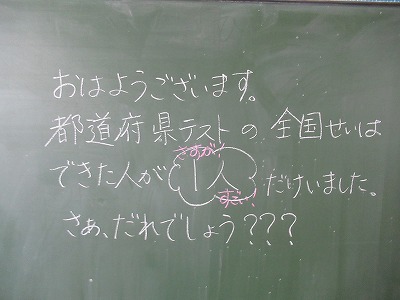 おはようございます。
都道府県テストの全国せいは
できた人が1人だけいました。
さすが!
すごい!
さぁ、だれでしょう???